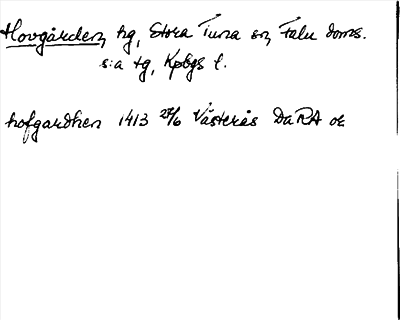 Hovgården, hg, Stora Tuna sn, Falu doms.
s:a tg, Kpbgs l.
hofgardhen 1413 27/6 Västerås DaRA or